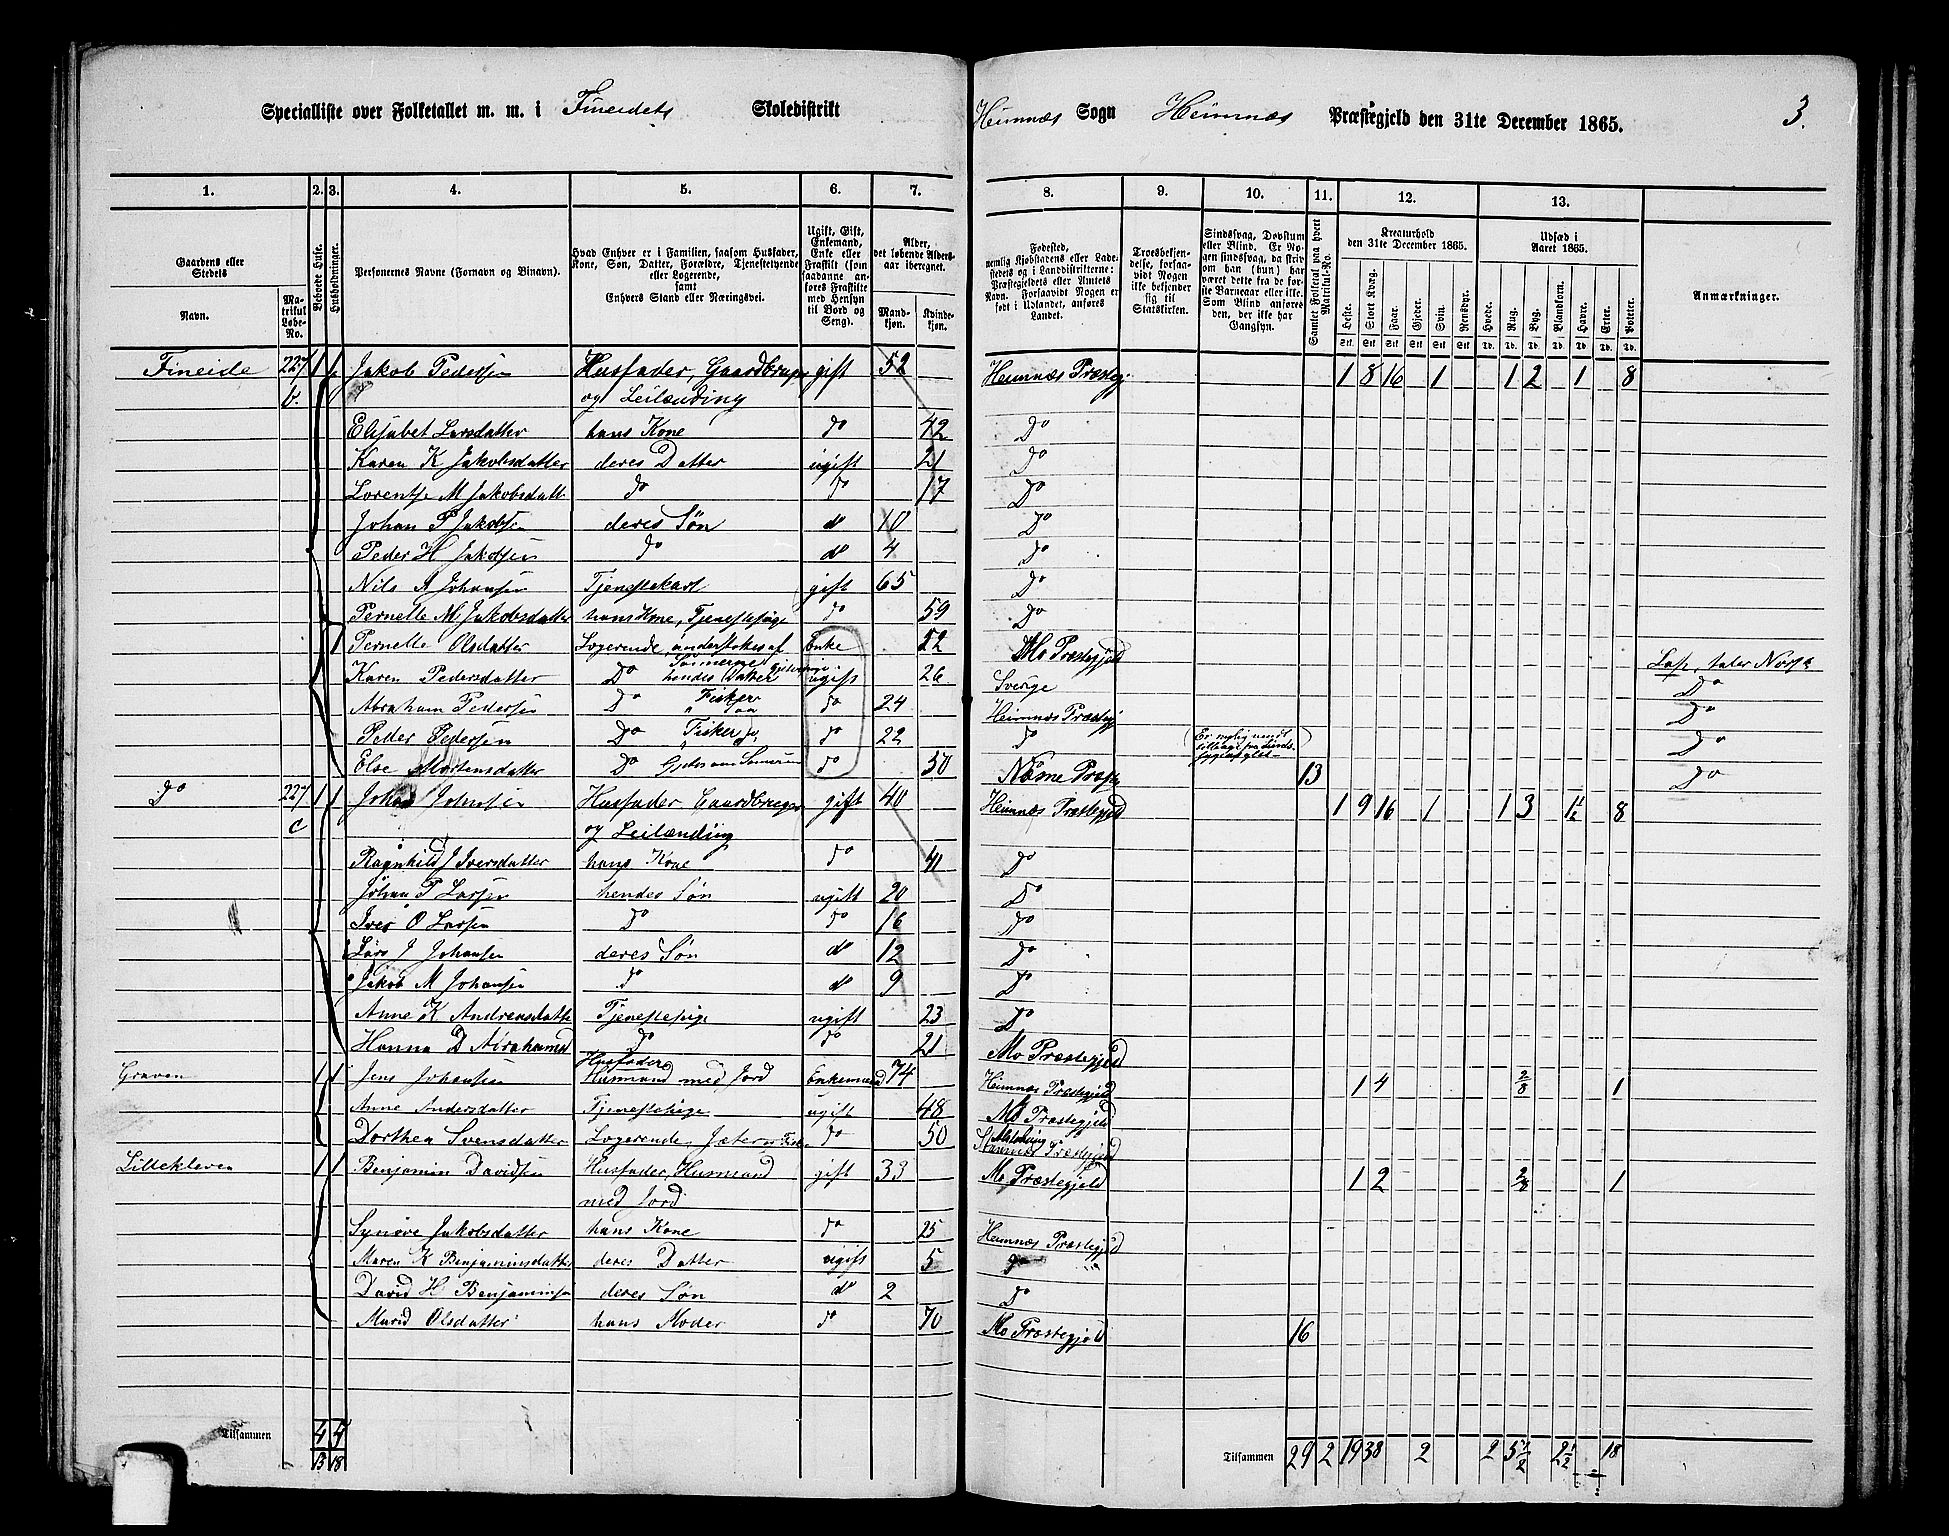 Specialliste over Folketallet m. m. i Fineidets Skoledistrikt Hemnæs Sogn Hemnæs Præstegjeld den 31te December 1865. 3.
1. 2. 3. 4. 5. 6. 7. 8. 9. 10. 11. 12. 13.
Gaardens eller Stedets
Navn.
Matrikul Løbe-No.
Beboede Huse.
Husholdninger.
Personernes Navne (Fornavn og Binavn).
Hvad Enhver er i Familien, saasom Husfader, Kone, Søn, Datter, Forældre, Tjenestetyende eller Logerende, samt Enhvers Stand eller Næringsvei.
Ugift, Gift, Enkemand, Enke eller Fraskilt (som saadanne anføres Fraskilte med Hensyn til Bord og Seng).
Alder, det løbende Alders-aar iberegnet.
Mandkjøn. Kvindekjøn.
Fødested, nemlig Kjøbstadens eller Ladestedets og i Landdistrikterne: Præstegjeldets eller Amtets Navn. Forsaavidt Nogen er født i Udlandet, anføres Landet.
Troesbekjendelse, forsaavidt Nogen ikke bekjender sig til Statskirken.
Sindssvag, Døvstum eller Blind. Er Nogen sindssvag, da skrives om han (hun) har været dette fra de første Barneaar eller ikke. Som Blind anføres den, der ikke har Gangsyn.
Samlet Folketal paa hvert Matrikul-No.
Kreaturhold den 31te December 1865.
Heste. Stort Kvæg. Faar. Gjeder. Svin. Rensdyr.
Udsæd i Aaret 1865.
Hvede. Rug. Byg. Blandkorn. Havre. Erter. Poteter.
Anmærkninger.
Fineide 227 b. 1 1 Jakob Pedersen Husfader, Gaardbruger gift 52 Hemnæs Præstegj 1 8 16 1 1 2 1 8
og Leilænding
Elisabet Larsdatter hans Kone do 42 Do
Karen K Jakobsdatter deres Datter ugift 21 Do
Lorentse M Jakobsdatt do do 17 Do
Johan P Jakobsen deres Søn do 10 Do
Peder H Jakobsen do do 4 Do
Nils A Johansen Tjenestekarl gift 65 Do
Pernelle M Jakobsdatter hans Kone, Tjenestepige do 59 Do
1 Pernelle Olsdatter Logerende, understøttes af Sønnerne Enke 52 Mo Præstegjeld Lap, taler Norsk
Karen Pedersdatter Do hendes Datter ugift 26 Sverige Do
Abraham Pedersen Do Fisker ugift do 24 Hemnæs Præstegj Do
Peder Pedersen Do Fisker do do 22 Do Do
Else Mortensdatter Do do 50 Præstg 13 Do
Do 227 c 1 1 Johan Johnsen Husfader Gaardbruger gift 40 Hemnæs Præstegjeld 1 9 16 1 1 3 1½ 8
og Leilænding
Ragnhild J Iversdatter hans Kone do 41 Do
Johan P Larsen hendes Søn ugift 20 Do
Iver O Larsen Do do 16 Do
Lars J Johansen deres Søn do 12 Do
Jakob M Johansen do do 9 Do
Anne K Andreasdatte Tjenestepige ugift 23 Do
Hanna D Abrahamsd do do 21 Mo Præstegjeld
Graven 1 1 Jens Johansen Husfader Husmand med Jord Enkemand 74 Hemnæs Præstegjeld 1 4 2/8 1
Anne Andersdatter Tjenestepige ugift 48 Mo Præstegjeld
Dorthea Svensdatter Logerende do 50 Præstegjeld
Lillekleven 1 1 Benjamin Davidsen Husfader, Husmand gift 33 Mo Præstegjeld 1 2 2/8 1
med Jord
Synøve Jakobsdatter hans Kone do 25 Hemnæs Præstegjeld
Maren K Benjaminsdatter deres Datter ugift 5 do
David H Benjaminsen deres Søn do 2 Do
Marid Olsdatter hans Moder do 70 Mo Præstegjeld 16
Tilsammen 4 5 Tilsammen 29 2 19 38 2 2 5½ 2½ 18
13 18